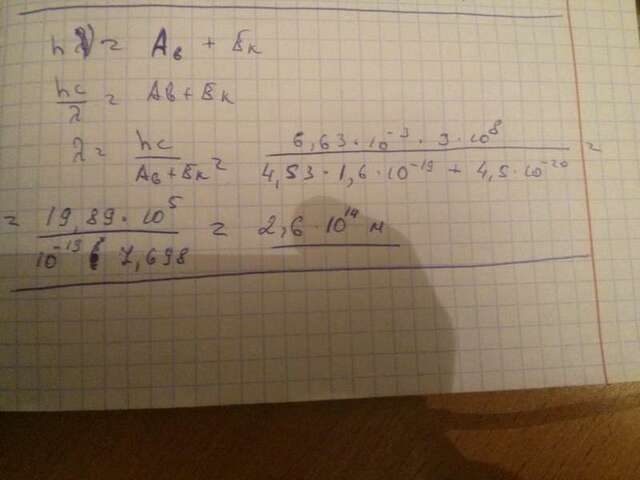 hν = Aв + Eк
hc/λ = Aв + Eк
λ = hc/(Aв + Eк) = (6,63 · 10⁻³ · 3 · 10⁸)/(4,53 · 1,6 · 10⁻¹⁹ + 4,5 · 10⁻²⁰) =
= (19,89 · 10⁵)/(10⁻¹⁹ · 7,698) = 2,6 · 10¹⁴ м